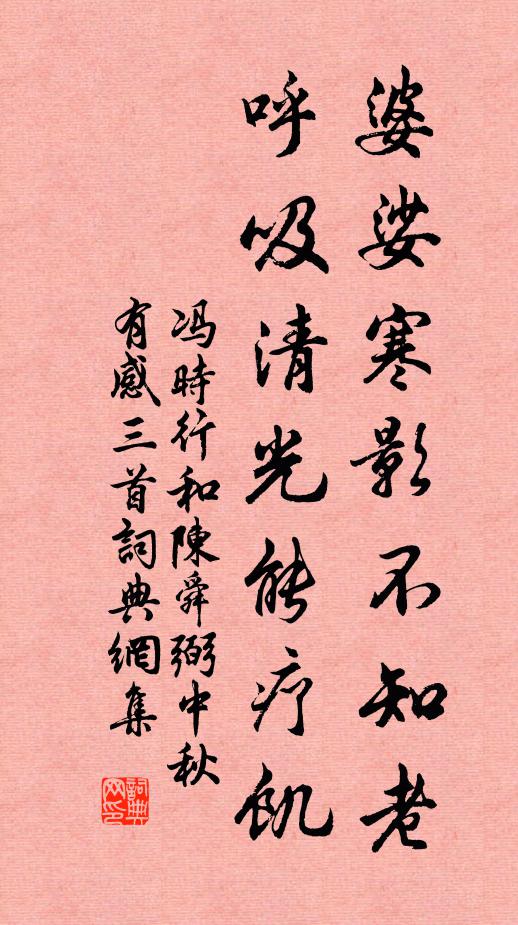 婆娑寒影不知老
呼吸清光能疗飢
冯時行和陳舜弼中秋
有感三首詞典網集
詞典
网印